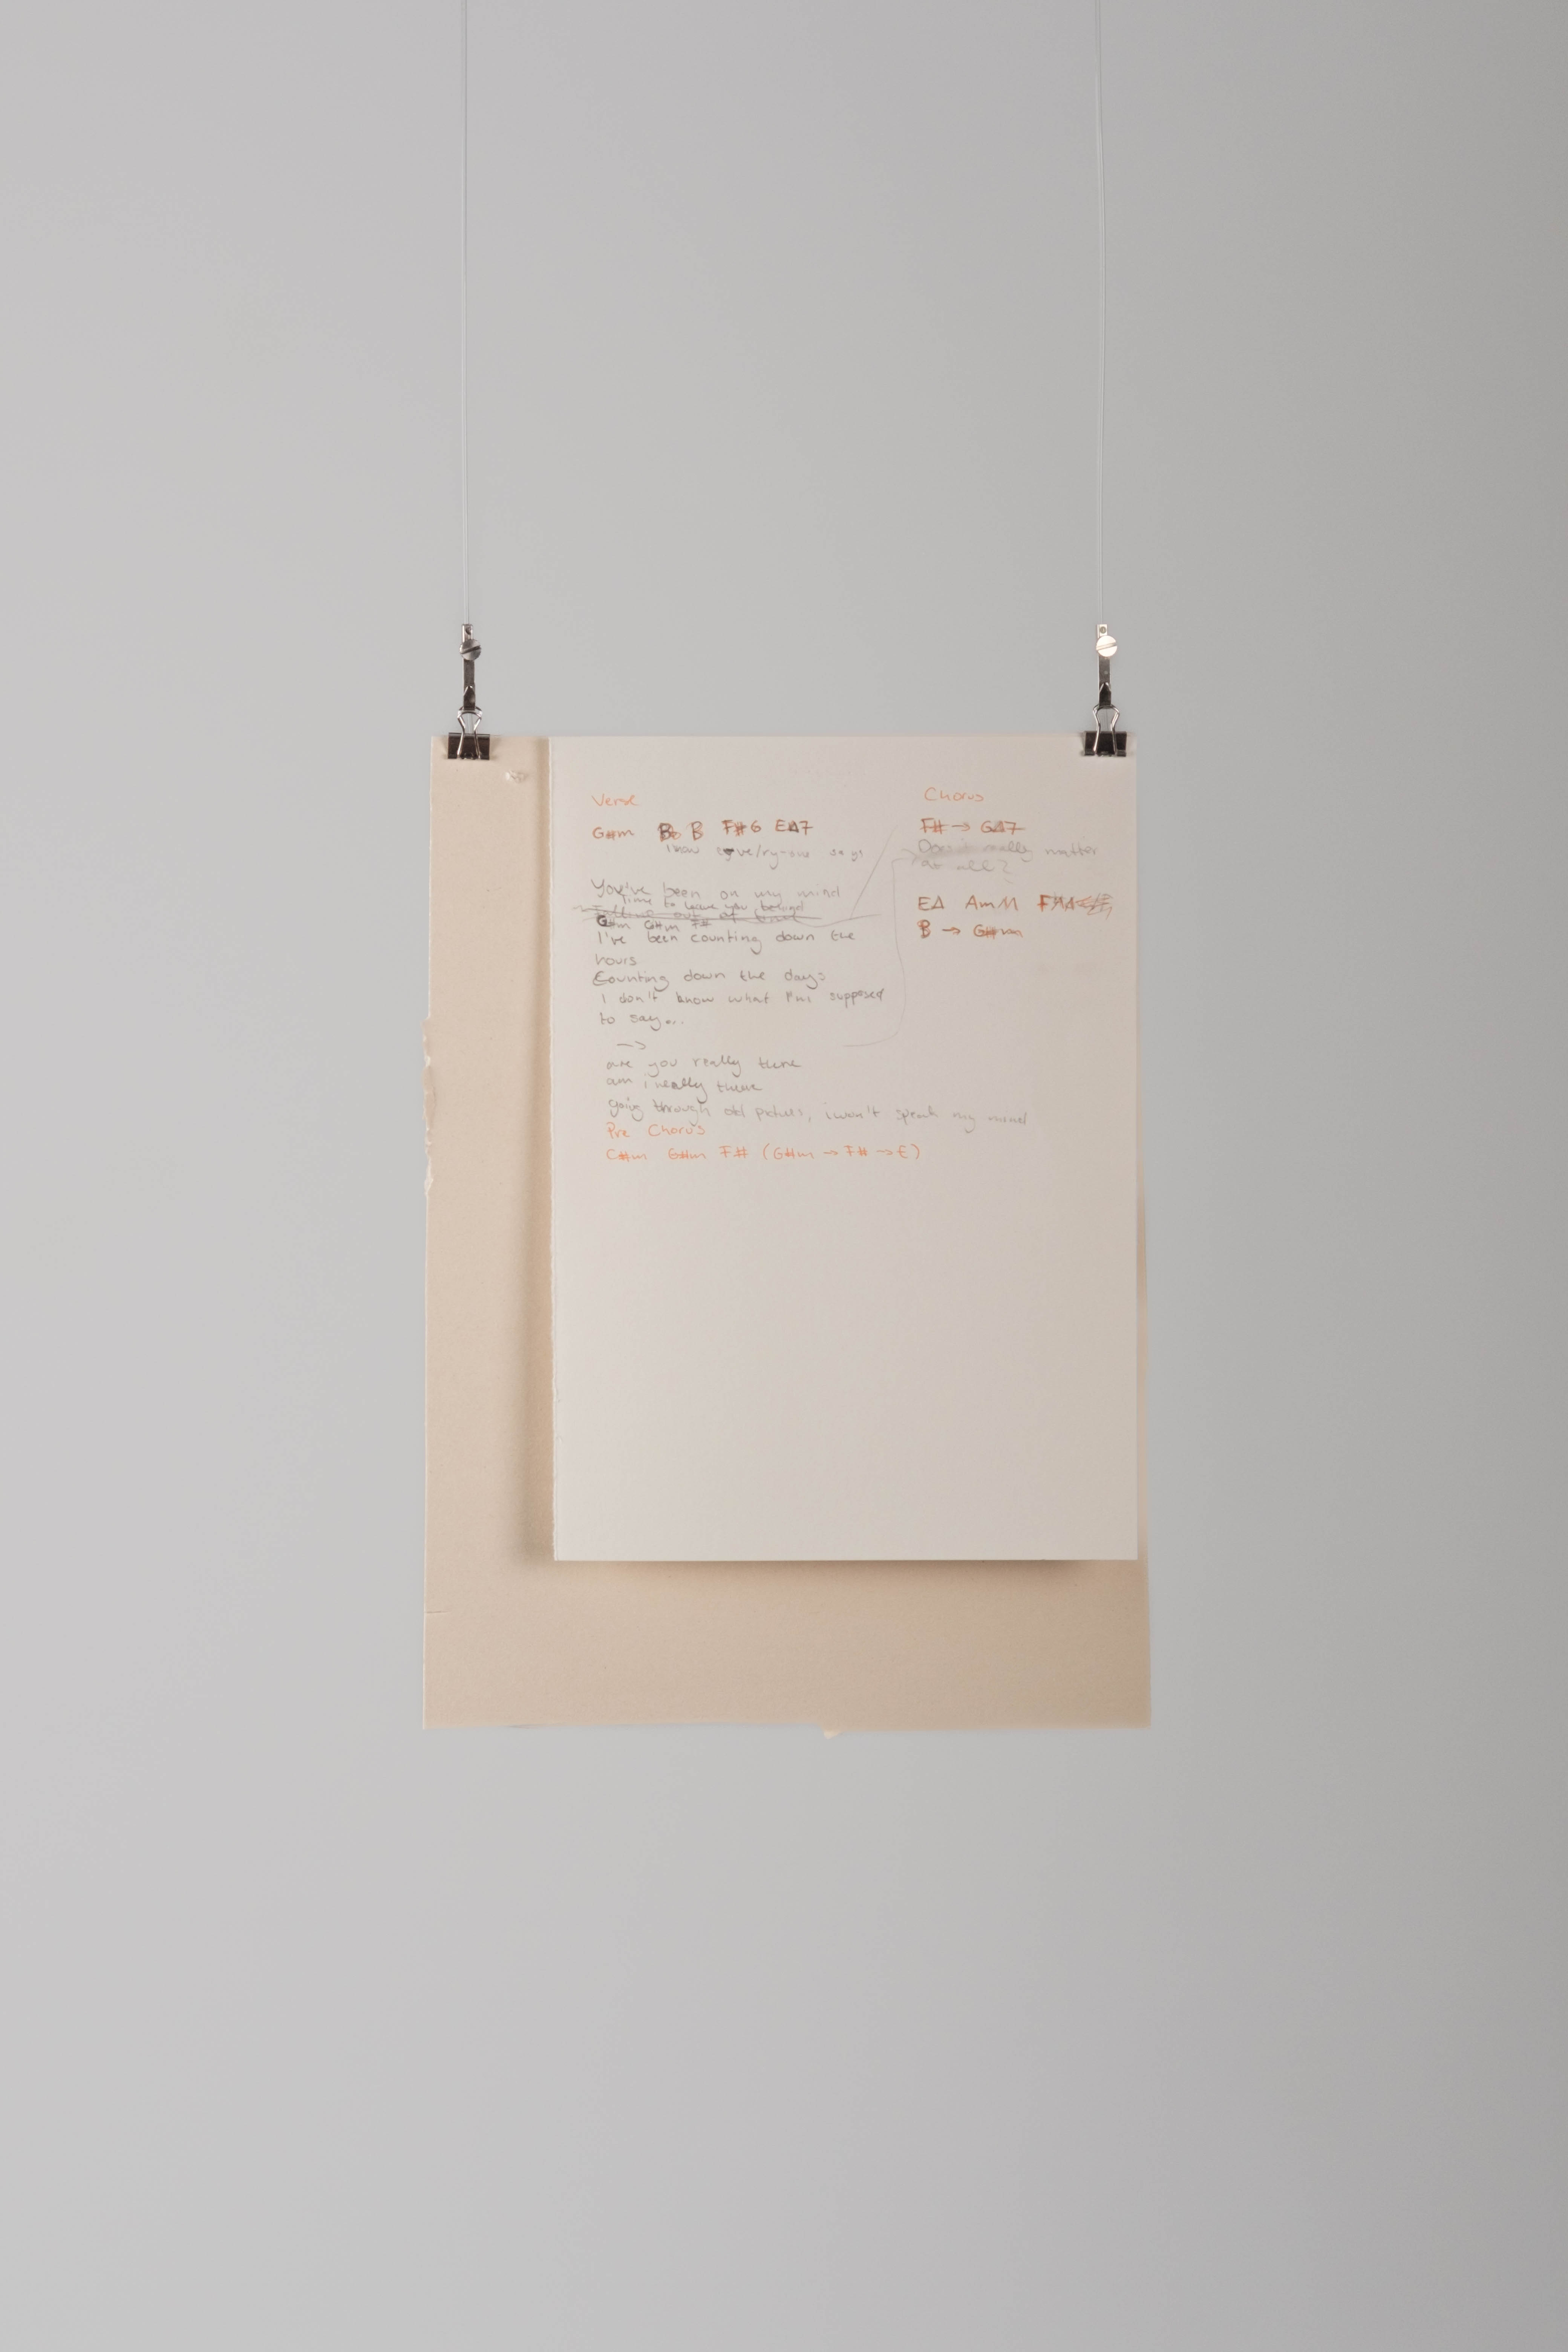 Verse
G#m B F#6 E∆7
I know eve/ry-one says
You've been on my mind
Time to leave you behind
out of time
G#m G#m F#
I've been counting down the
hours
Counting down the days
I don't know what I'm supposed
to say...
→
are you really there
am i really there
going through old pictures, i won't speak my mind
Pre Chorus
C#m G#m F# (G#m → F# → E)
Chorus
F# → G∆7
Does it really matter
at all?
E∆ AmM
B → G#m